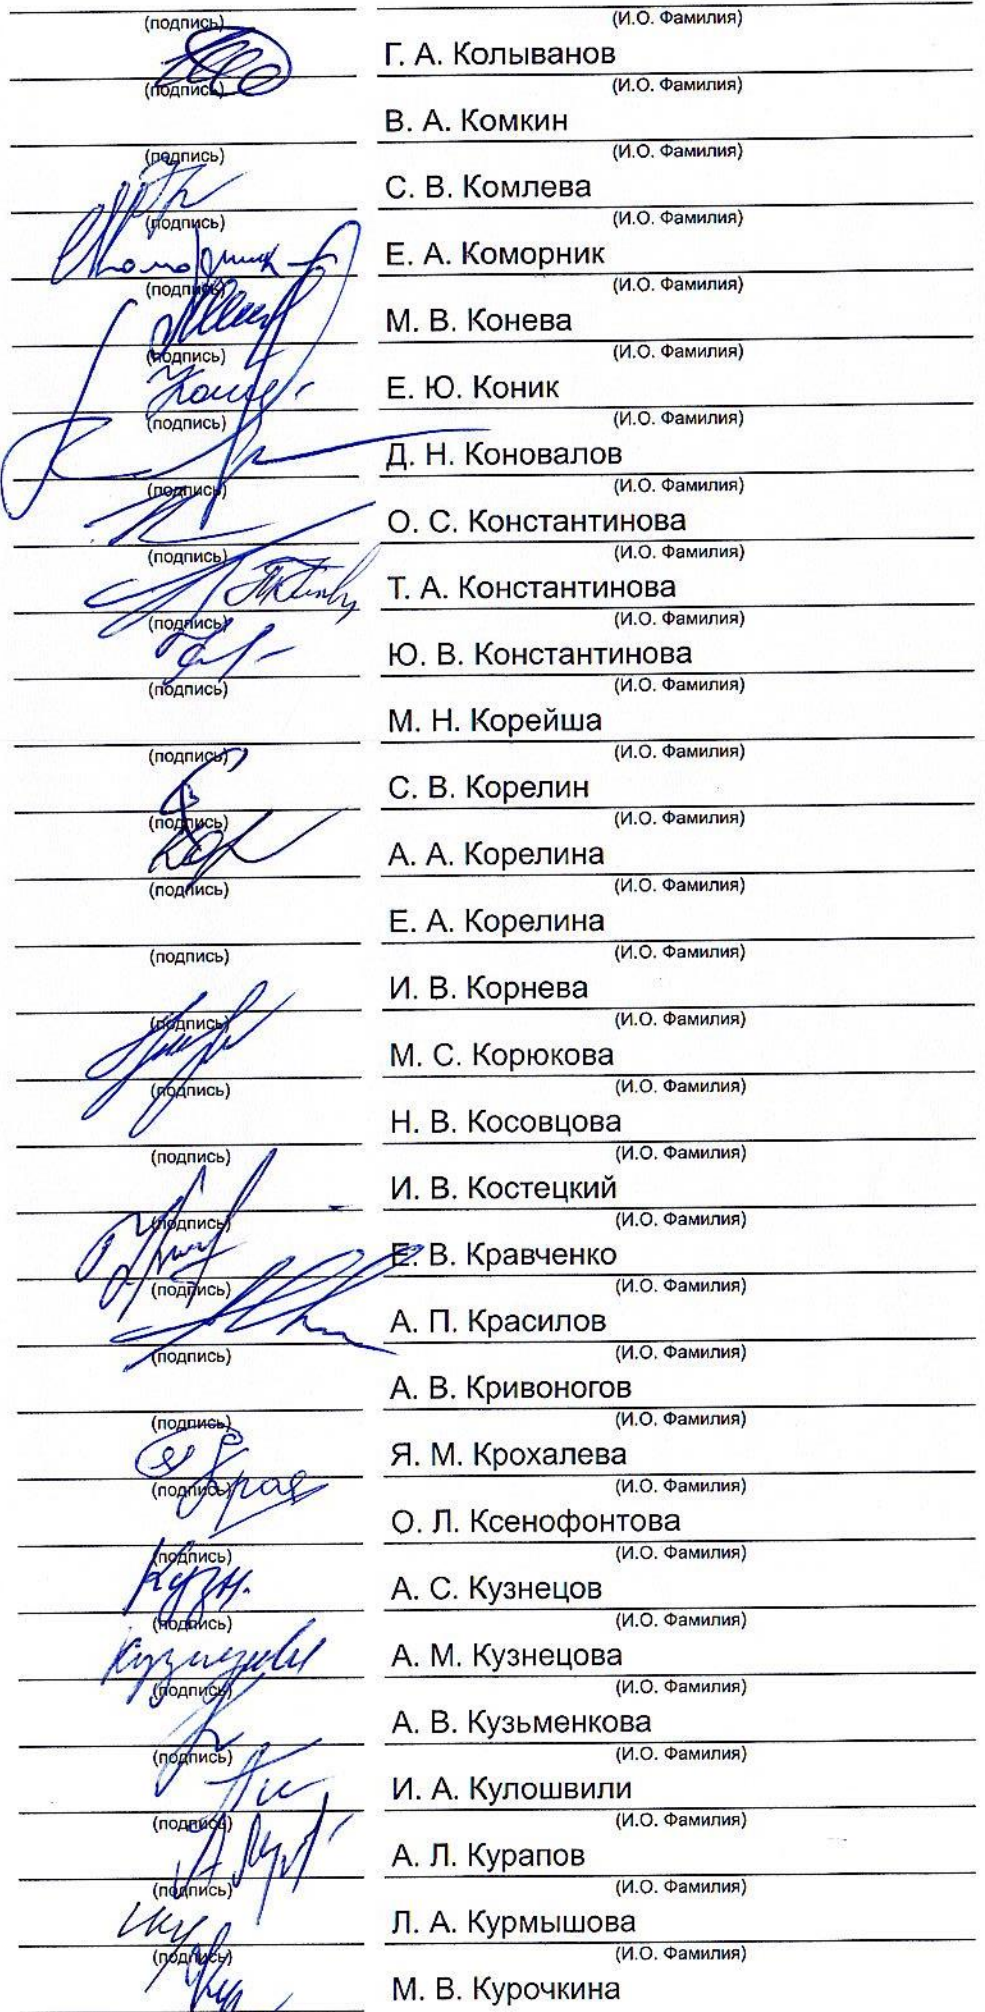 (подпись) (И.О. Фамилия)
Г. А. Колыванов
(подпись) (И.О. Фамилия)
В. А. Комкин
(подпись) (И.О. Фамилия)
С. В. Комлева
(подпись) (И.О. Фамилия)
Е. А. Коморник
(подпись) (И.О. Фамилия)
М. В. Конева
(подпись) (И.О. Фамилия)
Е. Ю. Коник
(подпись) (И.О. Фамилия)
Д. Н. Коновалов
(подпись) (И.О. Фамилия)
О. С. Константинова
(подпись) (И.О. Фамилия)
Т. А. Константинова
(подпись) (И.О. Фамилия)
Ю. В. Константинова
(подпись) (И.О. Фамилия)
М. Н. Корейша
(подпись) (И.О. Фамилия)
С. В. Корелин
(подпись) (И.О. Фамилия)
А. А. Корелина
(подпись) (И.О. Фамилия)
Е. А. Корелина
(подпись) (И.О. Фамилия)
И. В. Корнева
(подпись) (И.О. Фамилия)
М. С. Корюкова
(подпись) (И.О. Фамилия)
Н. В. Косовцова
(подпись) (И.О. Фамилия)
И. В. Костецкий
(подпись) (И.О. Фамилия)
Е. В. Кравченко
(подпись) (И.О. Фамилия)
А. П. Красилов
(подпись) (И.О. Фамилия)
А. В. Кривоногов
(подпись) (И.О. Фамилия)
Я. М. Крохалева
(подпись) (И.О. Фамилия)
О. Л. Ксенофонтова
(подпись) (И.О. Фамилия)
Кузн. А. С. Кузнецов
(подпись) (И.О. Фамилия)
А. М. Кузнецова
(подпись) (И.О. Фамилия)
А. В. Кузьменкова
(подпись) (И.О. Фамилия)
И. А. Кулошвили
(подпись) (И.О. Фамилия)
А. Л. Курапов
(подпись) (И.О. Фамилия)
Л. А. Курмышова
(подпись) (И.О. Фамилия)
М. В. Курочкина